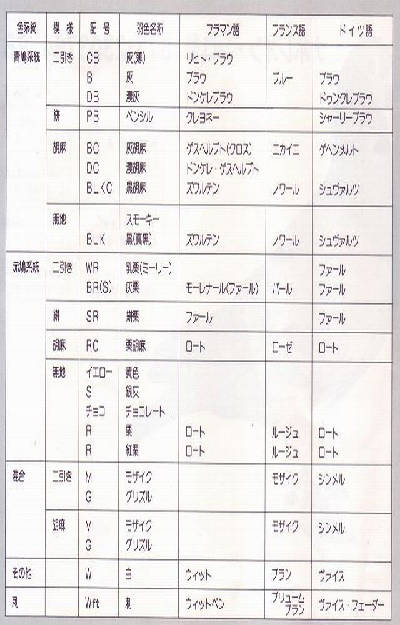 色系統 模様 記号 羽色名称 フラマン語 フランス語 ドイツ語
青鳩系統 二引き CB 灰(薄) リヒト・ブラウ
B 灰 ブラウ ブルー ブラウ
DB 濃灰 ドンケレブラウ ドゥンクレブラウ
PB ペンシル クレヨネー シャーリーブラウ
胡麻 BC 灰胡麻 ゲスヘルプト(クロス) エカイエ ゲヘンメルト
DC 濃胡麻 ドンケレ・ゲスヘルプト
BLKC 黒胡麻 ズワルテン ノワール シュヴァルツ
無地 スモーキー
BLK 黒(真黒) ズワルテン ノワール シュヴァルツ
二引き WR 乳栗(ミーリー) ファール
BR(S) 灰栗 モーレナール(ファール) パール ファール
SR ファール ファール
胡麻 RC 栗胡麻 ロート ローゼ ロート
無地 イエロー 黄色
S 銀灰
チョコ チョコレート
R 栗 ロート ルージュ ロート
R 紅栗 ロート ルージュ ロート
混合 二引き M モザイク モザイク シンメル
G グリズル
胡麻 M モザイク モザイク シンメル
G グリズル
その他 W 白 ウィット ブラン ヴァイス
Wft ウィットペン プリューム ブラン ヴァイス・フェーダー